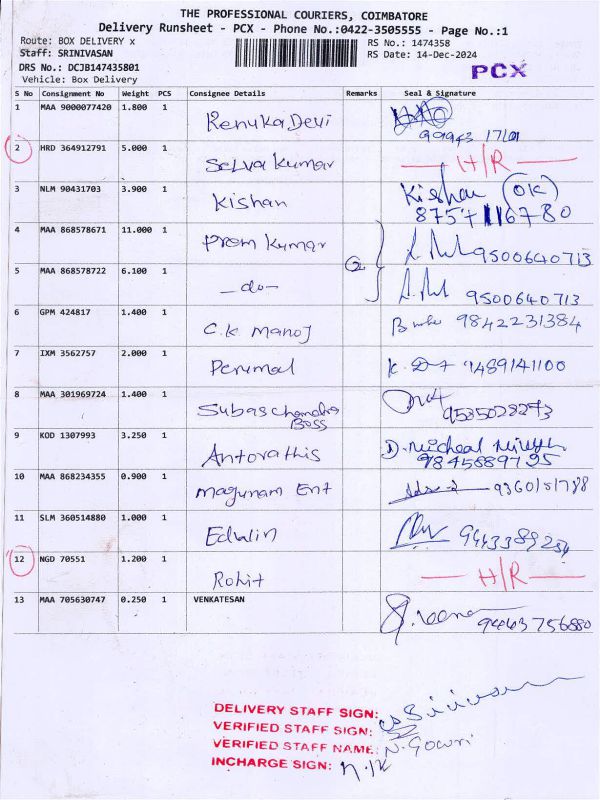 THE PROFESSIONAL COURIERS, COIMBATORE
Delivery Runsheet - PCX - Phone No.:0422-3505555 - Page No.:1
Route: BOX DELIVERY x
Staff: SRINIVASAN
DRS No.: DCJB147435801
Vehicle: Box Delivery
RS No.: 1474358
RS Date: 14-Dec-2024
PCX
S No Consignment No Weight PCS Consignee Details Remarks Seal & Signature
1 MAA 9000077420 1.800 1 Renuka Devi
2 HRD 364912791 5.000 1 Selva Kumar H/R
3 NLM 90431703 3.900 1 Kishan Kishan (OK)
8757116780
4 MAA 868578671 11.000 1 Prem Kumar 9500640713
5 MAA 868578722 6.100 1 -do- 9500640713
6 GPM 424817 1.400 1 C.K Manoj 9842231384
7 IXM 3562757 2.000 1 Perumal 9489141100
8 MAA 301969724 1.400 1 Subaschandra
Boss
9535028273
9 KOD 1307993 3.250 1 Antorathis
9845889795
10 MAA 868234355 0.900 1 Magunam Ent
11 SLM 360514880 1.000 1 Edwin 9443389254
12 NGD 70551 1.200 1 Rohit H/R
13 MAA 705630747 0.250 1 VENKATESAN
9444375​6880
DELIVERY STAFF SIGN:
VERIFIED STAFF SIGN:
VERIFIED STAFF NAME: N. Gowri
INCHARGE SIGN: